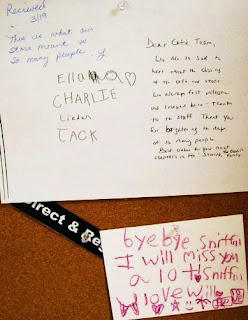 Received
3/19
This is what our
store meant to
so many people.
Ella
CHARLIE
Linden
JACK
Dear Cafe Team,
We are so sad to
hear about the closing
of the cafe and store.
We always felt welcome
and relaxed here. Thanks
to the staff. Thank you
for brightening the days
of so many people.
Best wishes for your next
chapters in life.
Family
irect & Re
bye bye sniffil
I will miss you
a lot! sniffil
love Will